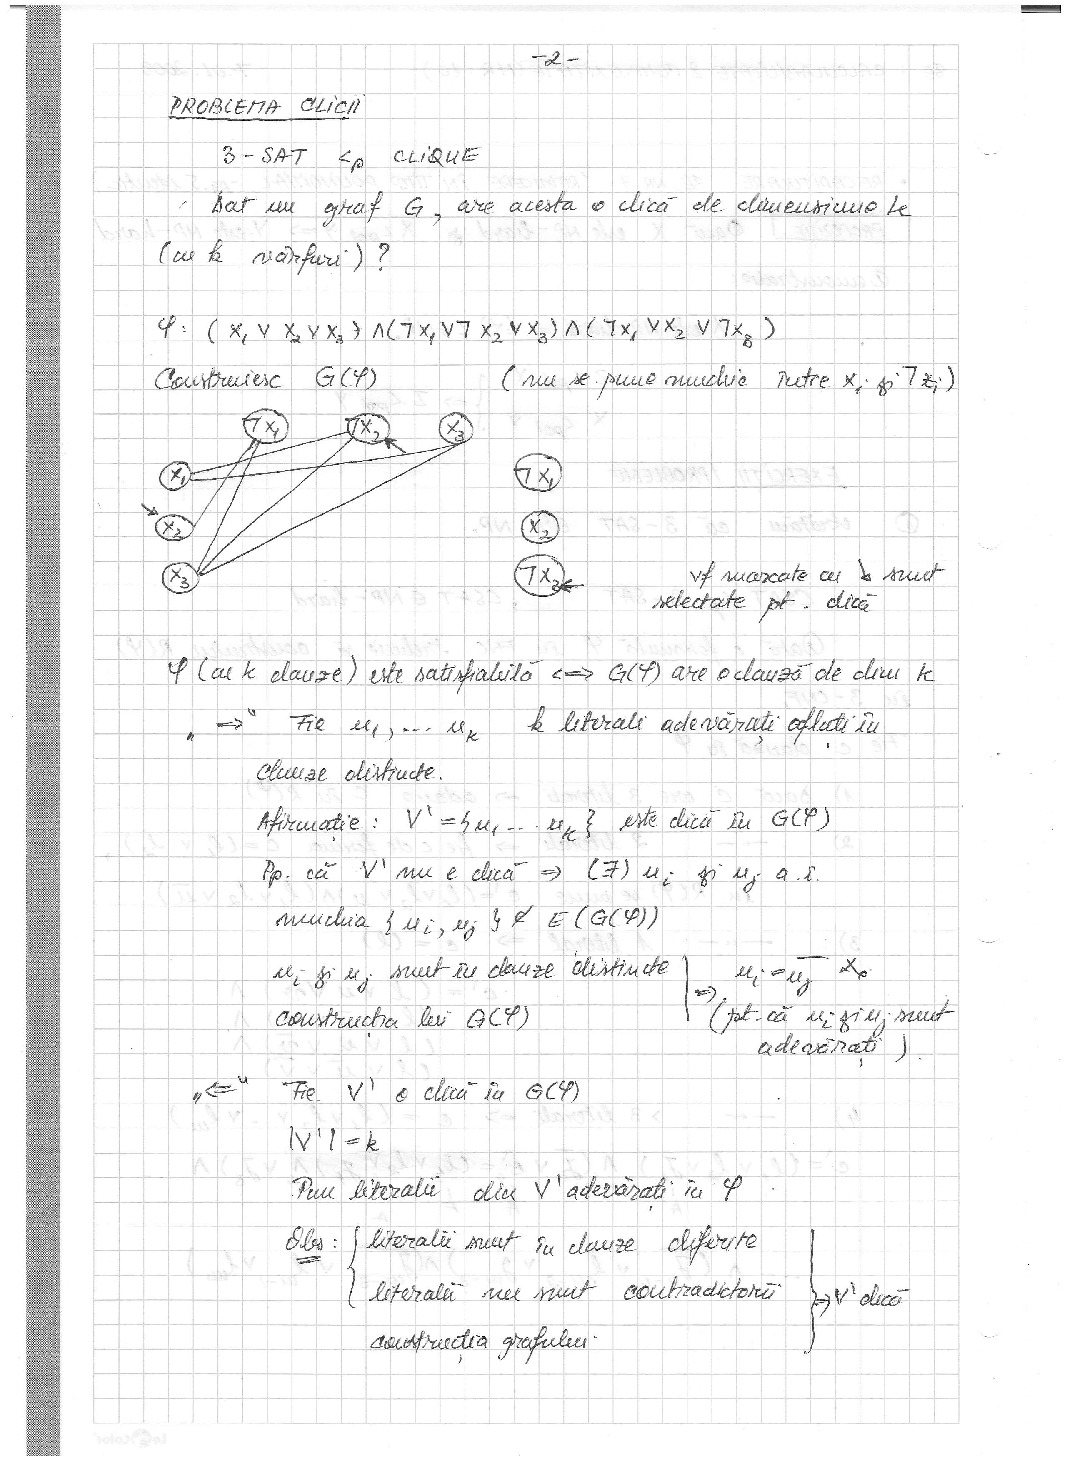 -2-
PROBLEMA CLICII
3-SAT <p CLIQUE
Dat un graf G, are acesta o clică de dimensiune k
(cu k vârfuri)?
φ: (x₁ ∨ x₂ ∨ x₃) ∧ (⌉x₁ ∨ ⌉x₂ ∨ x₃) ∧ (⌉x₁ ∨ x₂ ∨ ⌉x₃)
Construiesc G(φ) (nu se pune muchie între xᵢ și ⌉xᵢ)
⌉x₁ ⌉x₂ x₃
x₁ ⌉x₁
x₂ x₂
x₃ ⌉x₃
vf marcate cu ↘ sunt
selectate pt. clică
φ (cu k clauze) este satisfiabilă <=> G(φ) are o clauză de dim k
„=>" Fie u₁, ... uₖ k literali adevărați aflați în
clauze distincte.
Afirmație: V' = {u₁ ... uₖ} este clică în G(φ)
Pp. că V' nu e clică => (∃) uᵢ și uⱼ a.î.
muchia {uᵢ, uⱼ} ∉ E(G(φ))
uᵢ și uⱼ sunt în clauze distincte
construcția lui G(φ)
=> uᵢ = u̅ⱼ
(pt. că uᵢ și uⱼ sunt
adevărați).
„<=" Fie V' o clică în G(φ)
|V'| = k
Pun literalii din V' adevărați în φ.
Obs: { literalii sunt în clauze diferite
literalii nu sunt contradictorii => V' clică
construcția grafului.